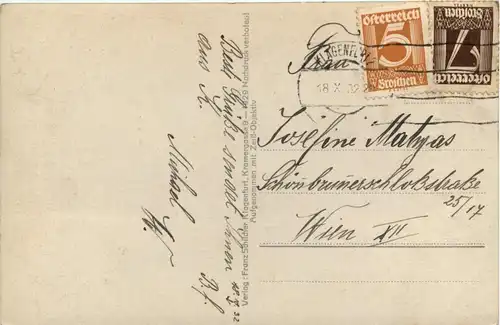 Beste Grüße sendet Ihnen
aus K.
Michael
18.X.32
Verlag: Franz Schilcher, Klagenfurt, Kramergasse 9 — 1929 Nachdruck verboten!
Aufgenommen mit Zeiß-Objektiv
Frau
KLAGENFURT
18.X.32
österreich
5
Groschen
österreich
7
Groschen
Josefine Matyas
Schönbrunnerschloßstraße
25/17
Wien XII